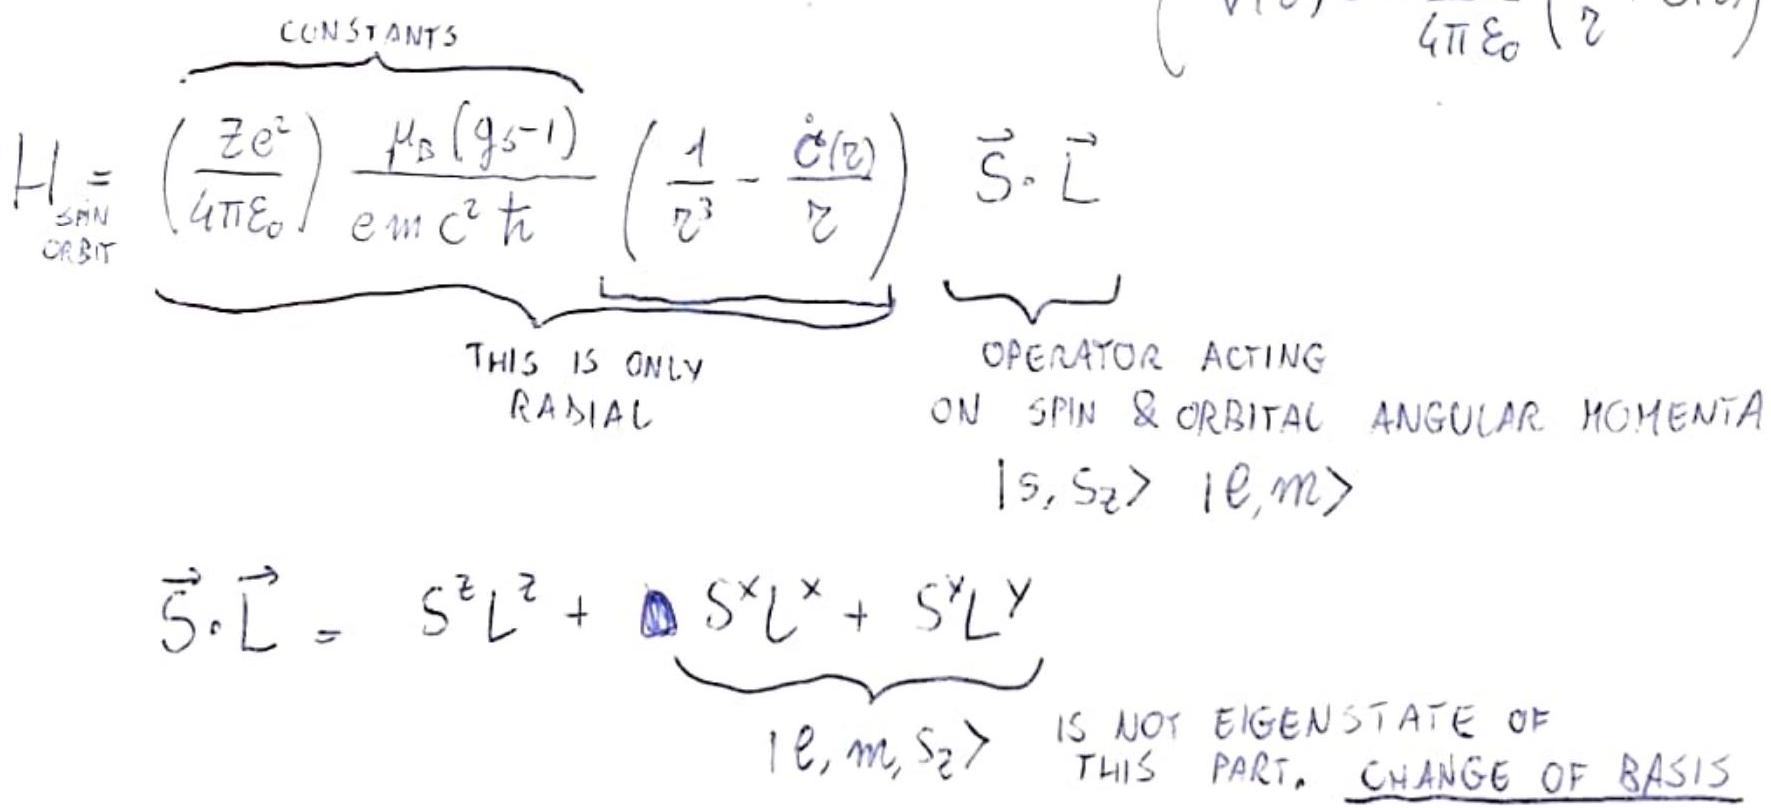 CONSTANTS
4πε₀ ( r
H SPIN ORBIT = (Ze²/4πε₀) μ_B(g_s-1)/(emc²ħ) (1/r³ - ċ(r)/r) S⃗·L⃗
THIS IS ONLY
RADIAL
OPERATOR ACTING
ON SPIN & ORBITAL ANGULAR MOMENTA
|s, S_z> |ℓ,m>
S⃗·L⃗ = S^z L^z + S^x L^x + S^y L^y
|ℓ, m, S_z> IS NOT EIGENSTATE OF
THIS PART. CHANGE OF BASIS